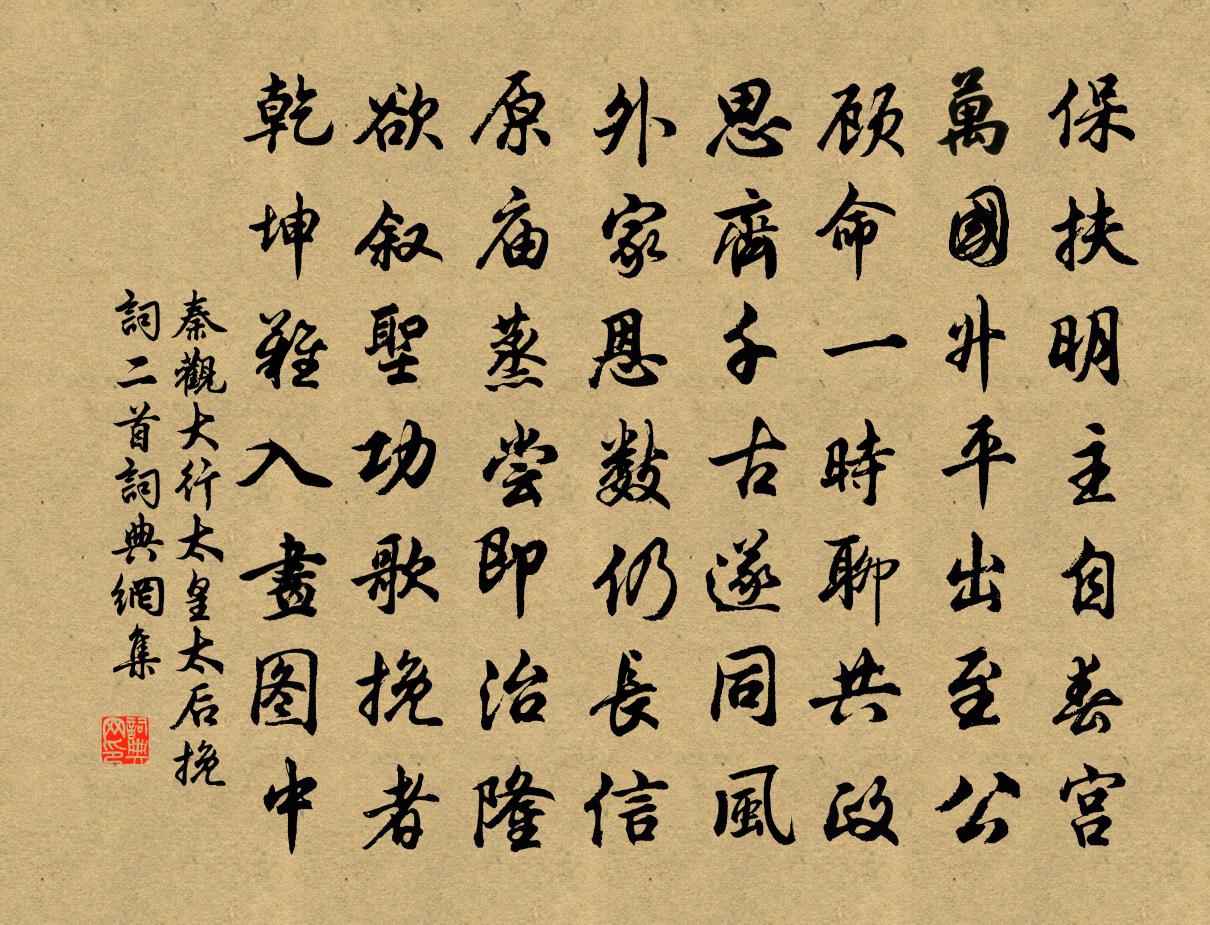 保扶明主自春宫
萬國升平出至公
顾命一時聊共政
思齊千古遂同風
外家恩数仍長信
原庙蒸尝即治隆
欲叙聖功歌挽者
乾坤難入畫图中
秦觀大行太皇太后挽
詞二首詞典網集
詞典
网印